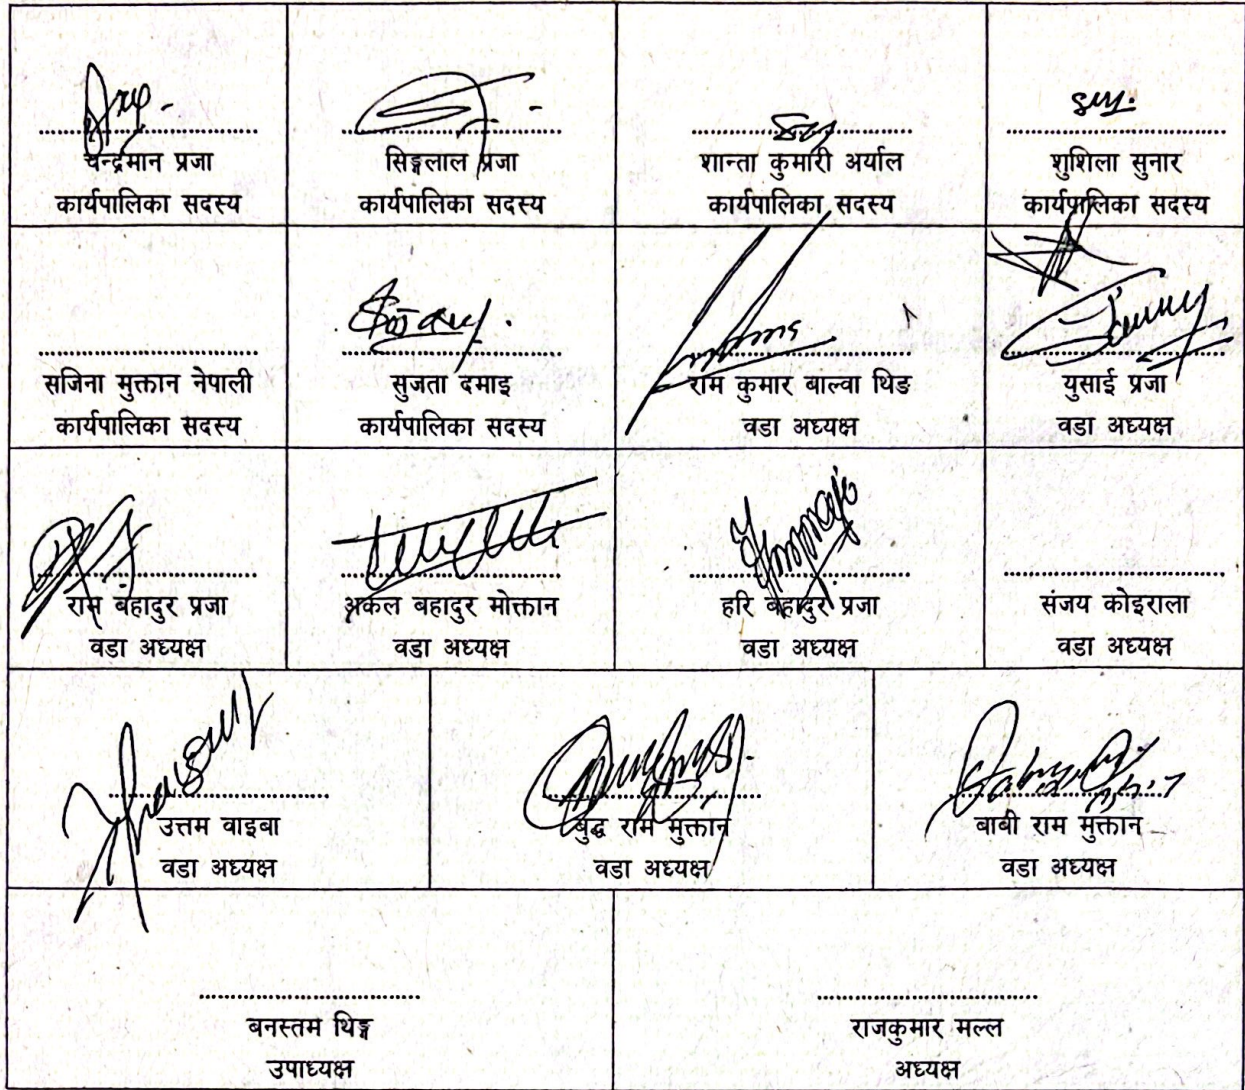 चन्द्रमान प्रजा
कार्यपालिका सदस्य
सिङ्गलाल प्रजा
कार्यपालिका सदस्य
शान्ता कुमारी अर्याल
कार्यपालिका सदस्य
शुशिला सुनार
कार्यपालिका सदस्य
सजिना मुक्तान नेपाली
कार्यपालिका सदस्य
सुजता दमाइ
कार्यपालिका सदस्य
राम कुमार बाल्वा थिङ
वडा अध्यक्ष
युसाई प्रजा
वडा अध्यक्ष
राम बहादुर प्रजा
वडा अध्यक्ष
अकल बहादुर मोक्तान
वडा अध्यक्ष
हरि बहादुर प्रजा
वडा अध्यक्ष
संजय कोइराला
वडा अध्यक्ष
उत्तम वाइबा
वडा अध्यक्ष
बुद्ध राम मुक्तान
वडा अध्यक्ष
बाबी राम मुक्तान
वडा अध्यक्ष
बनस्तम थिङ्ग
उपाध्यक्ष
राजकुमार मल्ल
अध्यक्ष